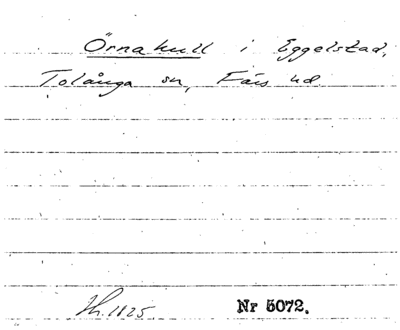 Örnakull i Eggelstad,
Tolånga sn, Färs hd.
Nr 5072.